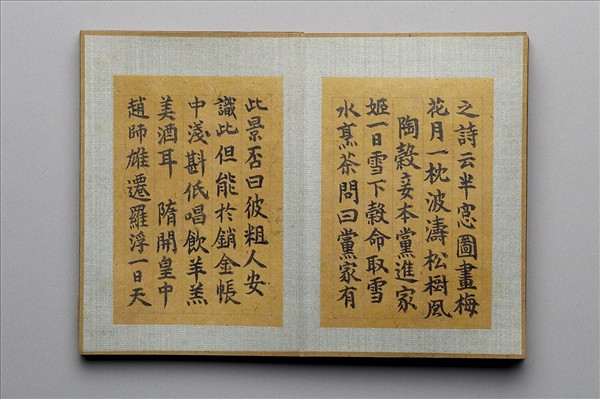 之詩云半窓圖畫梅
花月一枕波濤松樹風
陶穀妾本黨進家
姬一日雪下穀命取雪
水烹茶問曰黨家有
此景否曰彼粗人安
識此但能於銷金帳
中淺斟低唱飲羊羔
美酒耳 隋開皇中
趙師雄遷羅浮一日天